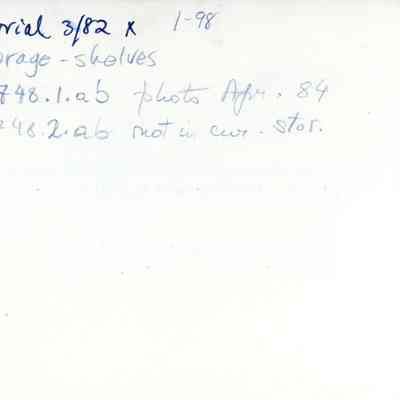 orial 3/82 x 1-98
orage - shelves
748.1.ab photo Apr. 84
748.2.ab not in cur. stor.